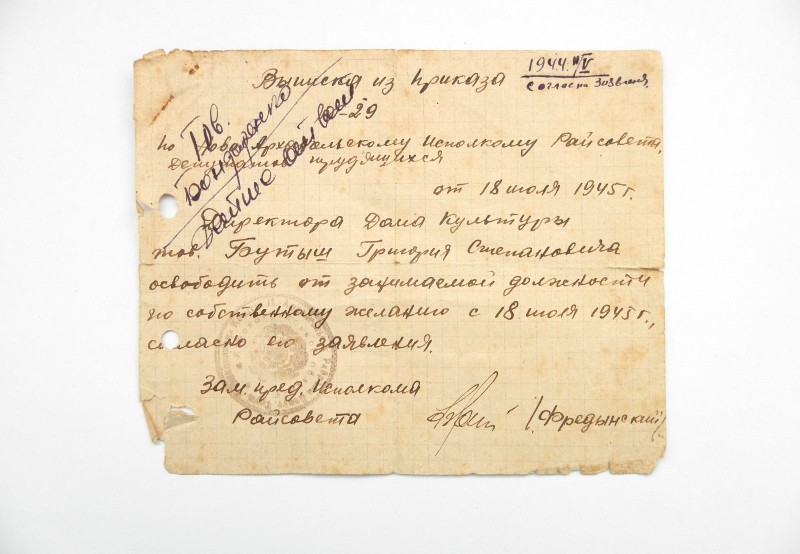 1944 11/V
согласн заявления.
Выписка из приказа
-29
Тов.
Бондаренко
по Архангельскому Исполкому Райсовета
Депутатов трудящихся
от 18 июля 1945 г.
Директора Дома Культуры
тов. Бутыш Григория Степановича
освободить от занимаемой должности
по собственному желанию с 18 июля 1945 г.,
согласно его заявления.
Зам. пред. Исполкома
Райсовета /Фредынский/